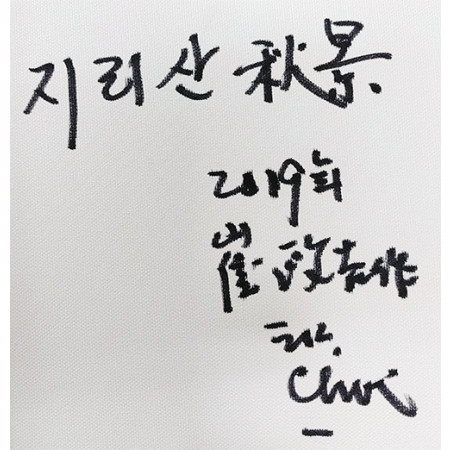 지리산 秋景.
2019년
崔 吉作
Choi